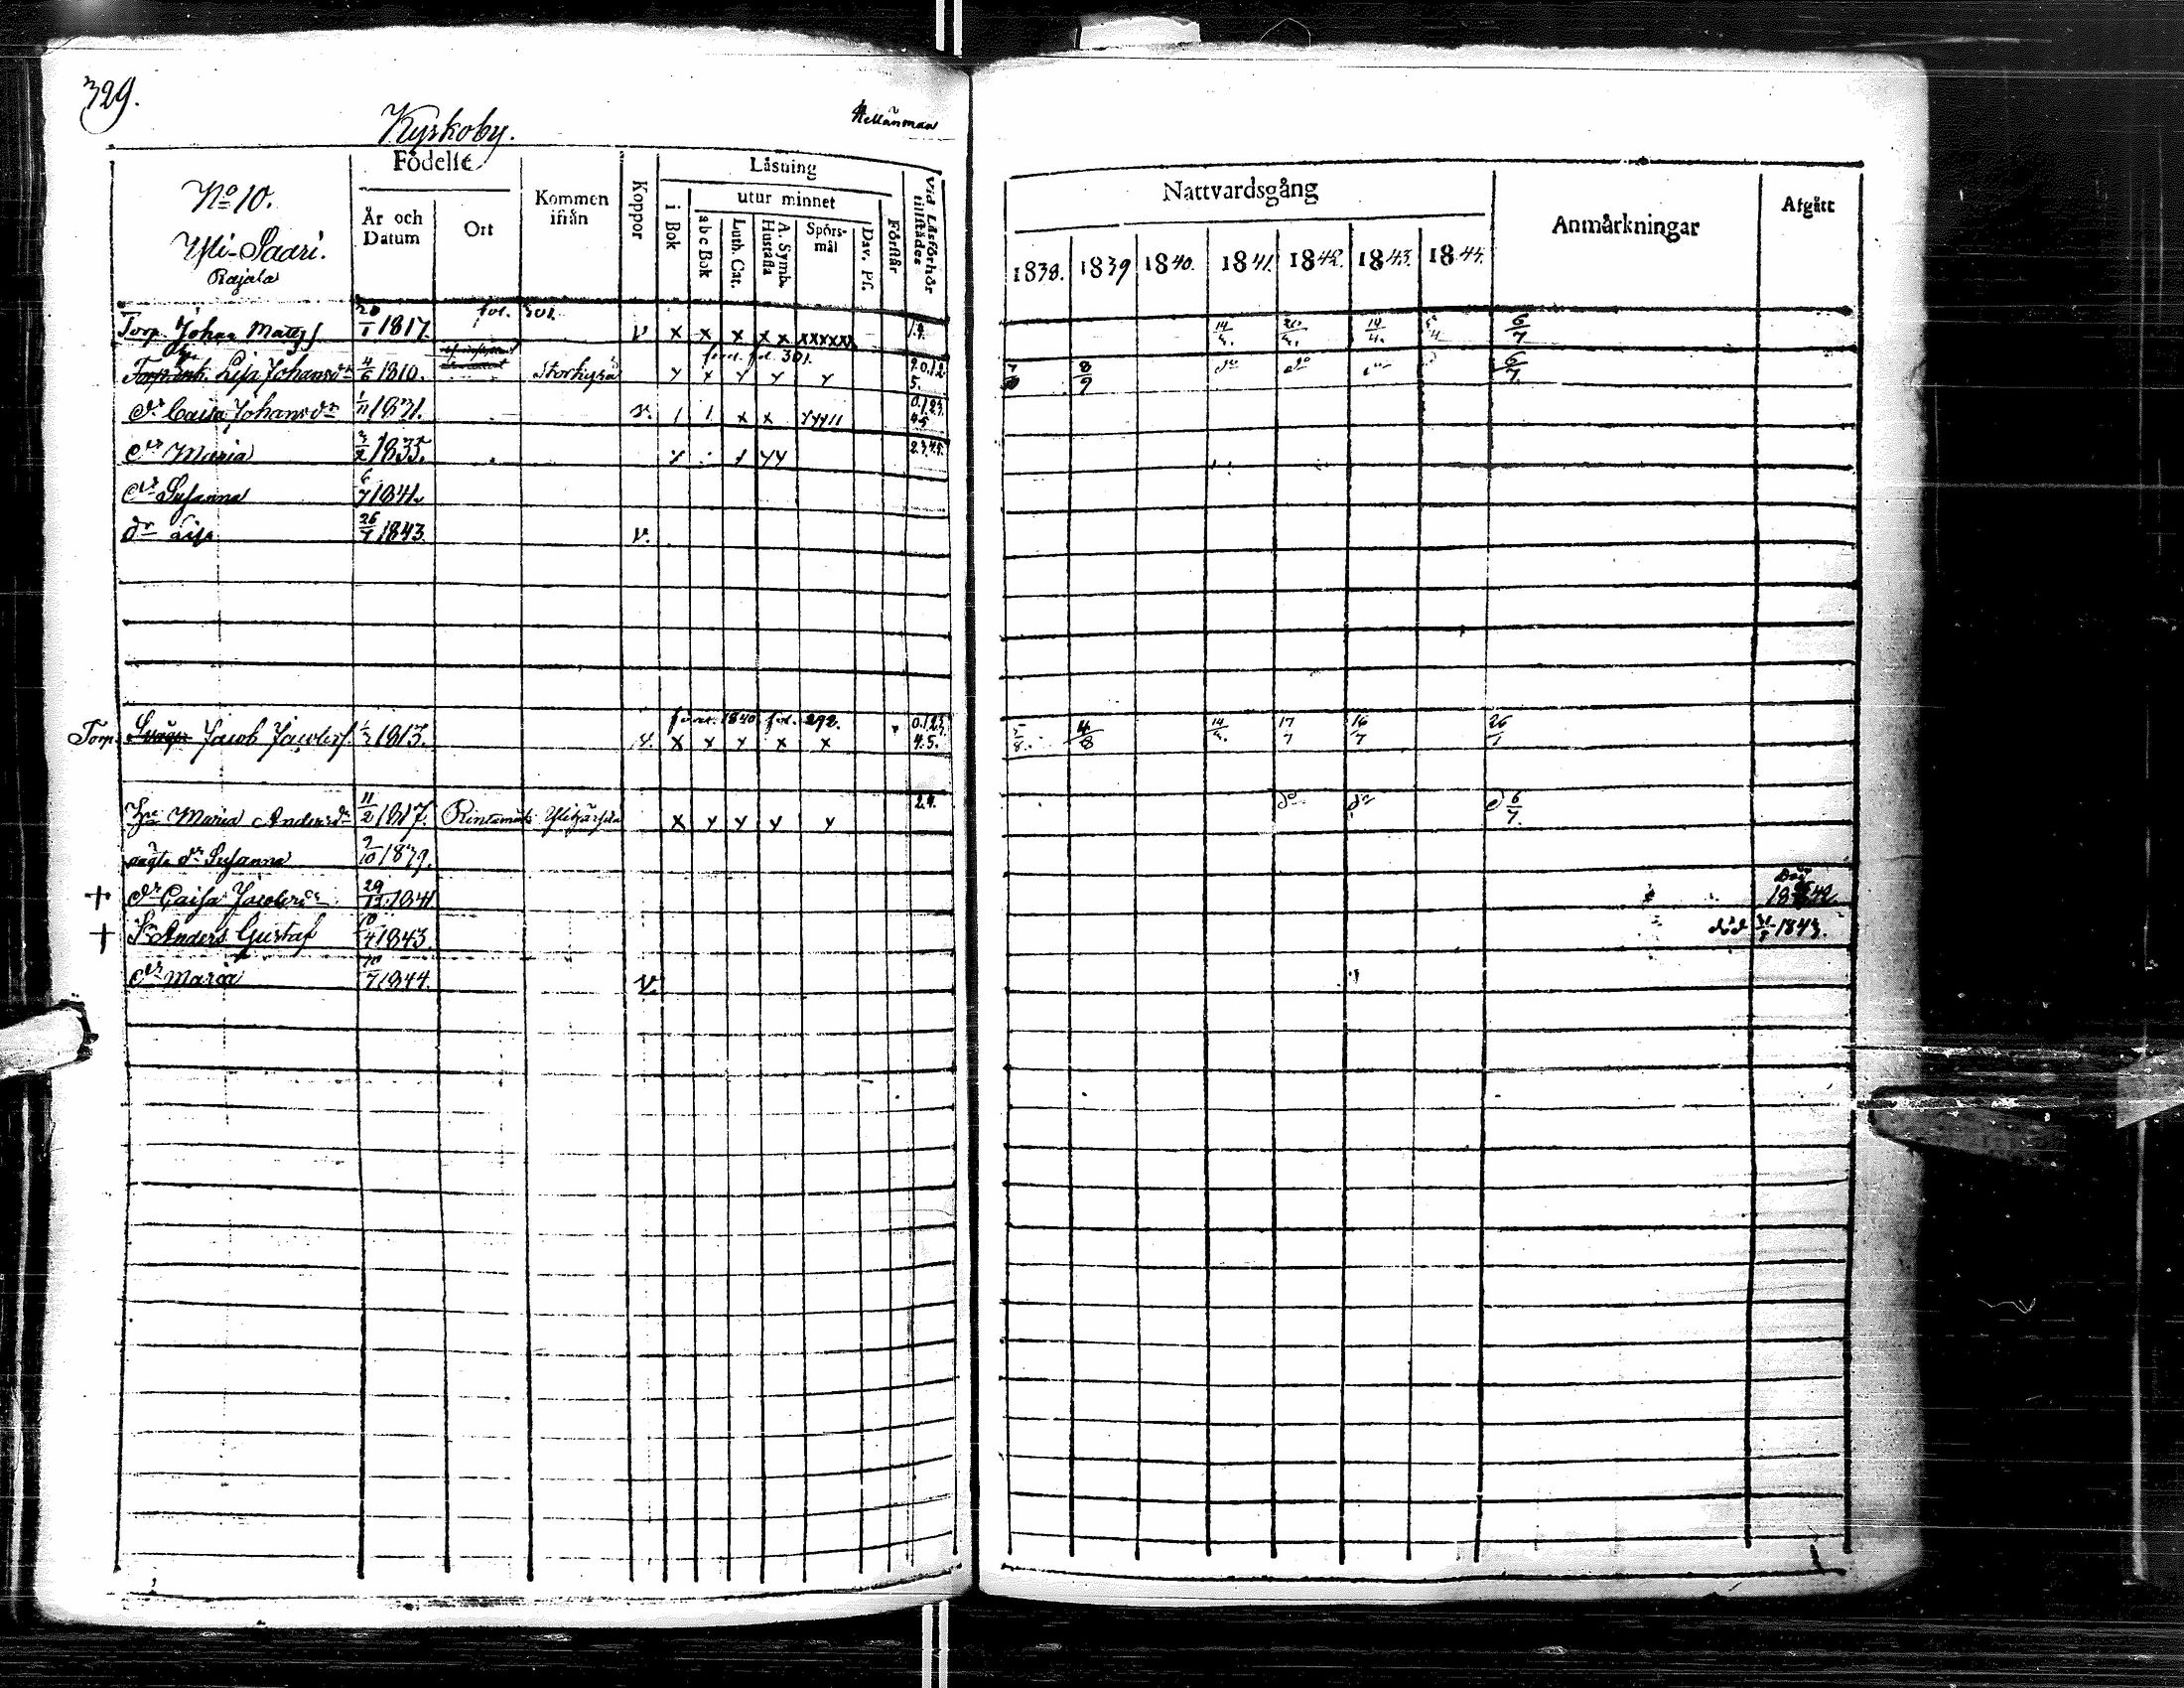 329.
Kyrkoby.
No 10.
Yli-Saari.
Rajala
Födelse
År och Datum
Ort
Kommen ifrån
Koppor
Läsning
i Bok
utur minnet
a b c Bok
Luth. Cat.
A. Symb. Hustafla
Spörs-mål
Dav. Ps.
Förstår
Vid Läsförhör tillstädes
Nattvardsgång
1838. 1839 1840. 1841. 1842. 1843. 1844.
Anmärkningar
Afgått
Torp. Johan Matts s. 20/1 1817. fol. 301. v x x x x x xxxxxx 14/4. 20/4. 14/4. 5/4 6/7
förut fol. 301.
Lisa Johansdr 4/6 1810. Storkyrå y x y y y 9.0.1.2. 5. 8/9 do do 6/7.
dr Caisa Johansdr 1/11 1831. v. 1 1 x x yy11 0.1.2.3. 4.5
dr Maria 3/2 1835. 2.3.4.5.
dr Susanna 6/7 1841.
dr Lisa 26/7 1843. v.
förut 1840. fol. 292.
Torp. Jacob Jacobss. 1/3 1813. v. x x y x x 0.1.2.3. 4.5. 5/8. 4/8 14/4. 17/7 16/7 26/7
Hu Maria Andersdr 11/2 1817. Rintamäki Ylihärmä x y y y y 2.4. do do d 6/7.
oägta dr Susanna 9/10 1839.
+ dr Caisa Jacobsdr 29/12 1841 Död 1842
+ Sn Anders Gustaf 10/4 1843 död 31/8 1843.
dr Maria 10/7 1844. v.